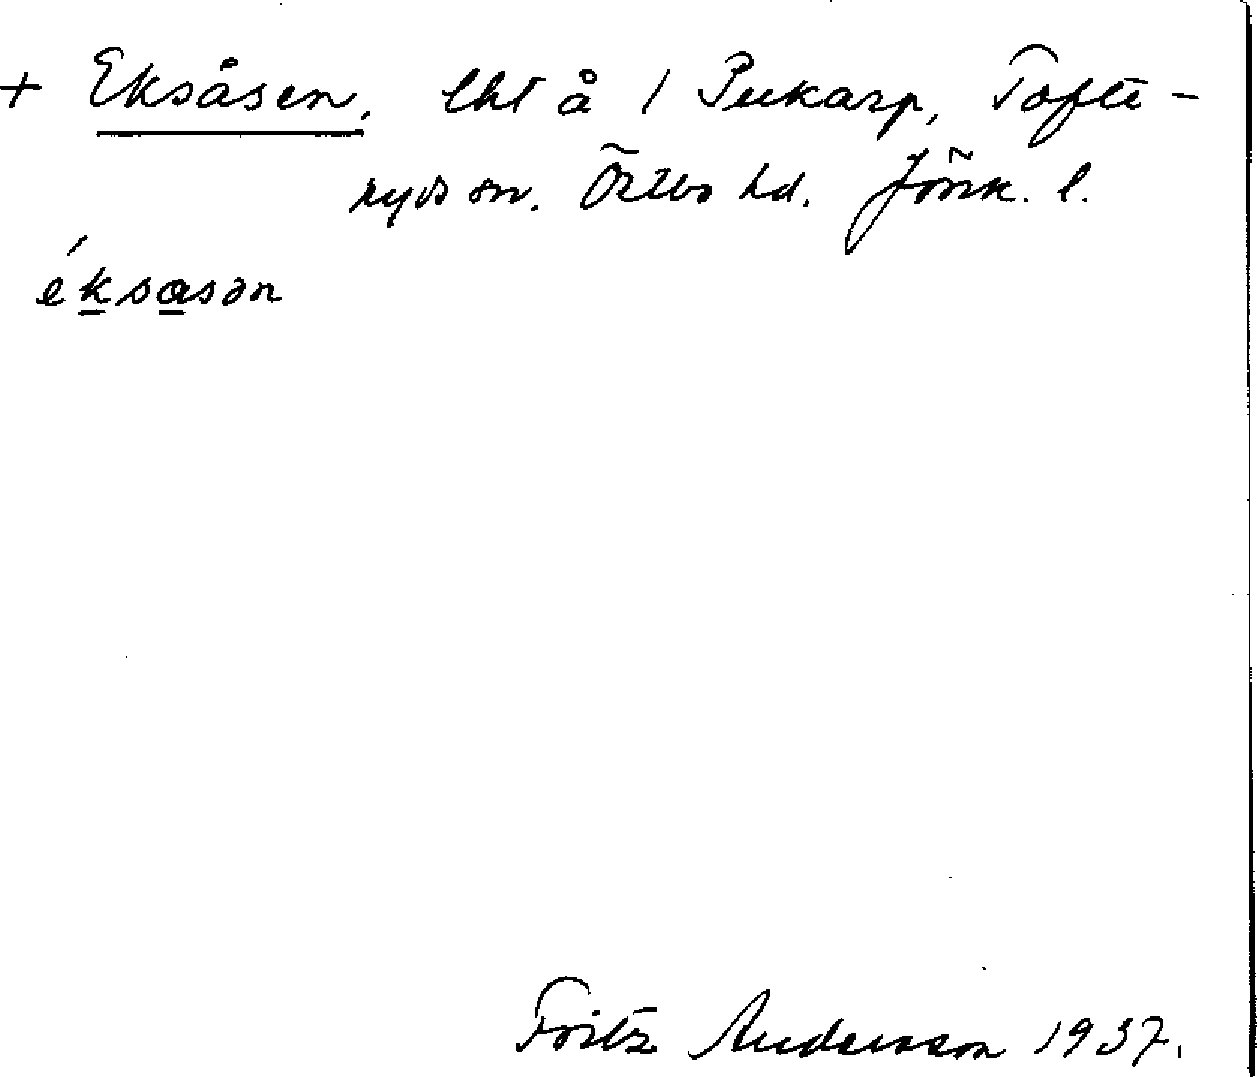 + Eksåsen, lht å 1 Pukarp, Tofte-
ryds sn. Östbo hd. Jönk. l.
éksasən
Fritz Andersson 1937.